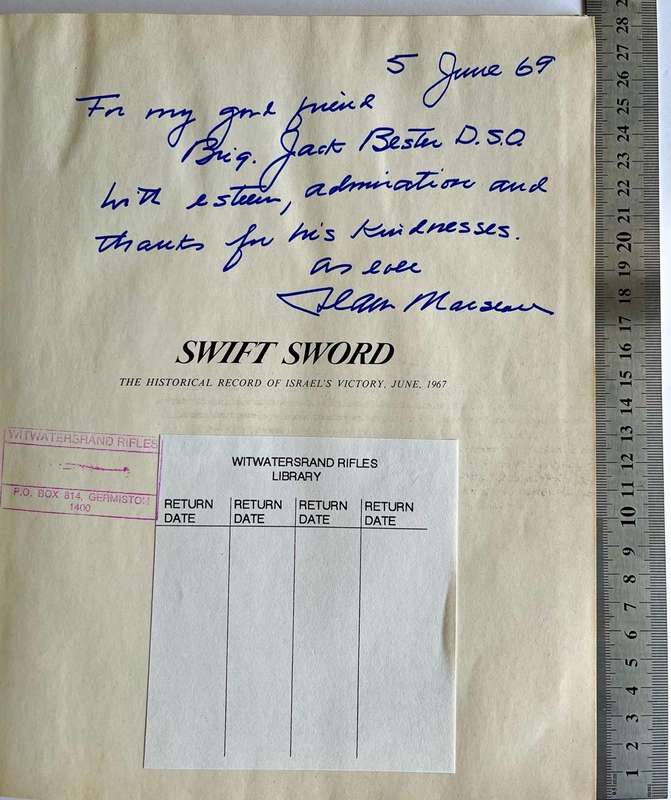 5 June 69
For my good friend
Brig. Jack Bester D.S.O.
with esteem, admiration and
thanks for his kindnesses.
as ever
SWIFT SWORD
THE HISTORICAL RECORD OF ISRAEL'S VICTORY, JUNE, 1967
WITWATERSRAND RIFLES
P.O. BOX 814, GERMISTON
1400
WITWATERSRAND RIFLES
LIBRARY
RETURN DATE RETURN DATE RETURN DATE RETURN DATE
28
27
26
25
24
23
22
21
20
19
18
17
16
15
14
13
12
11
10
9
8
7
6
5
4
3
2
1